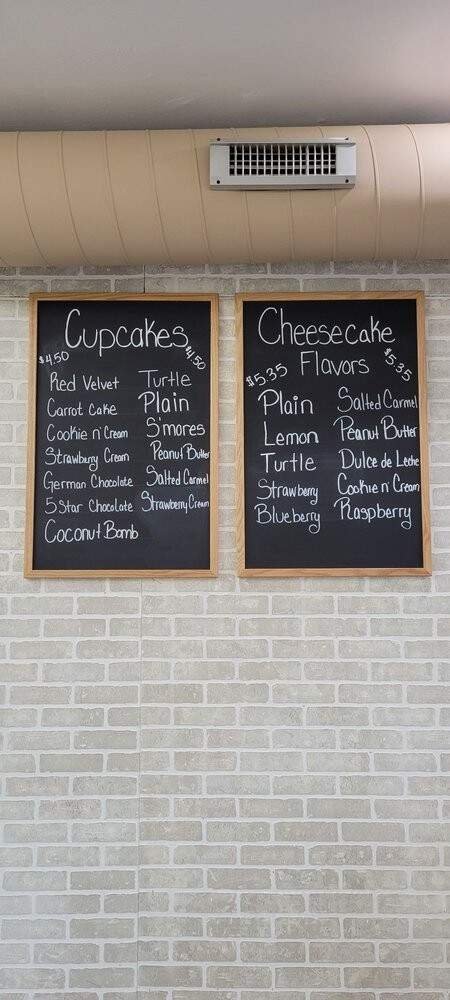 Cupcakes
$4.50
$4.50
Red Velvet
Carrot Cake
Cookie n' Cream
Strawberry Cream
German Chocolate
5 Star Chocolate
Coconut Bomb
Turtle
Plain
S'mores
Peanut Butter
Salted Carmel
Strawberry Cream
Cheesecake
Flavors
$5.35
$5.35
Plain
Lemon
Turtle
Strawberry
Blueberry
Salted Carmel
Peanut Butter
Dulce de Leche
Cookie n' Cream
Raspberry